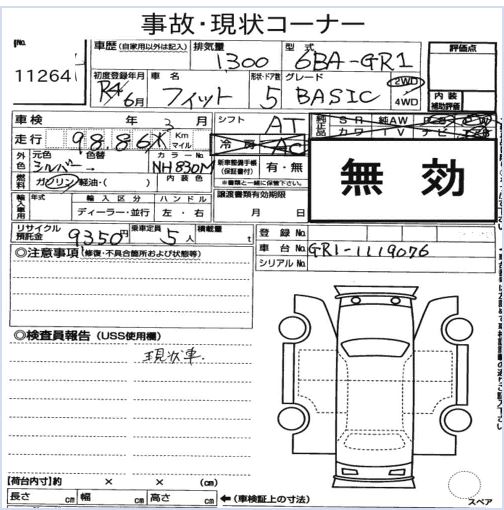 事故・現状コーナー
No.
11264
車歴 (自家用以外は記入) 排気量 1300 型式 6BA-GR1 評価点
初度登録年月 R4 6月 車名 フィット 形状・ドア数 5 グレード BASIC 2WD 4WD
内装補助評価
車検 年 月 シフト AT 純正品 SR 純AW カワ TV ナビ
走行 98,86 Km マイル 冷房 AC
外色 元色 シルバー 色替 カラーNo. NH830M 新車整備手帳(保証書付) 有・無
※書類と一緒に保管下さい。
無効
燃料 ガソリン・軽油・( ) 内装色 譲渡書類有効期限
輸入車用 年式 輸入区分 ハンドル
ディーラー・並行 左・右 月 日
リサイクル預託金 9350円 乗車定員 5人 積載量 t 登録No.
車台No. GR1-1119076
シリアルNo.
◎注意事項 (修復・不具合箇所および状態等)
◎検査員報告 (USS使用欄)
現状車
【荷台内寸】約 × × (cm)
長さ cm 幅 cm 高さ cm ←(車検証上の寸法)
スペア